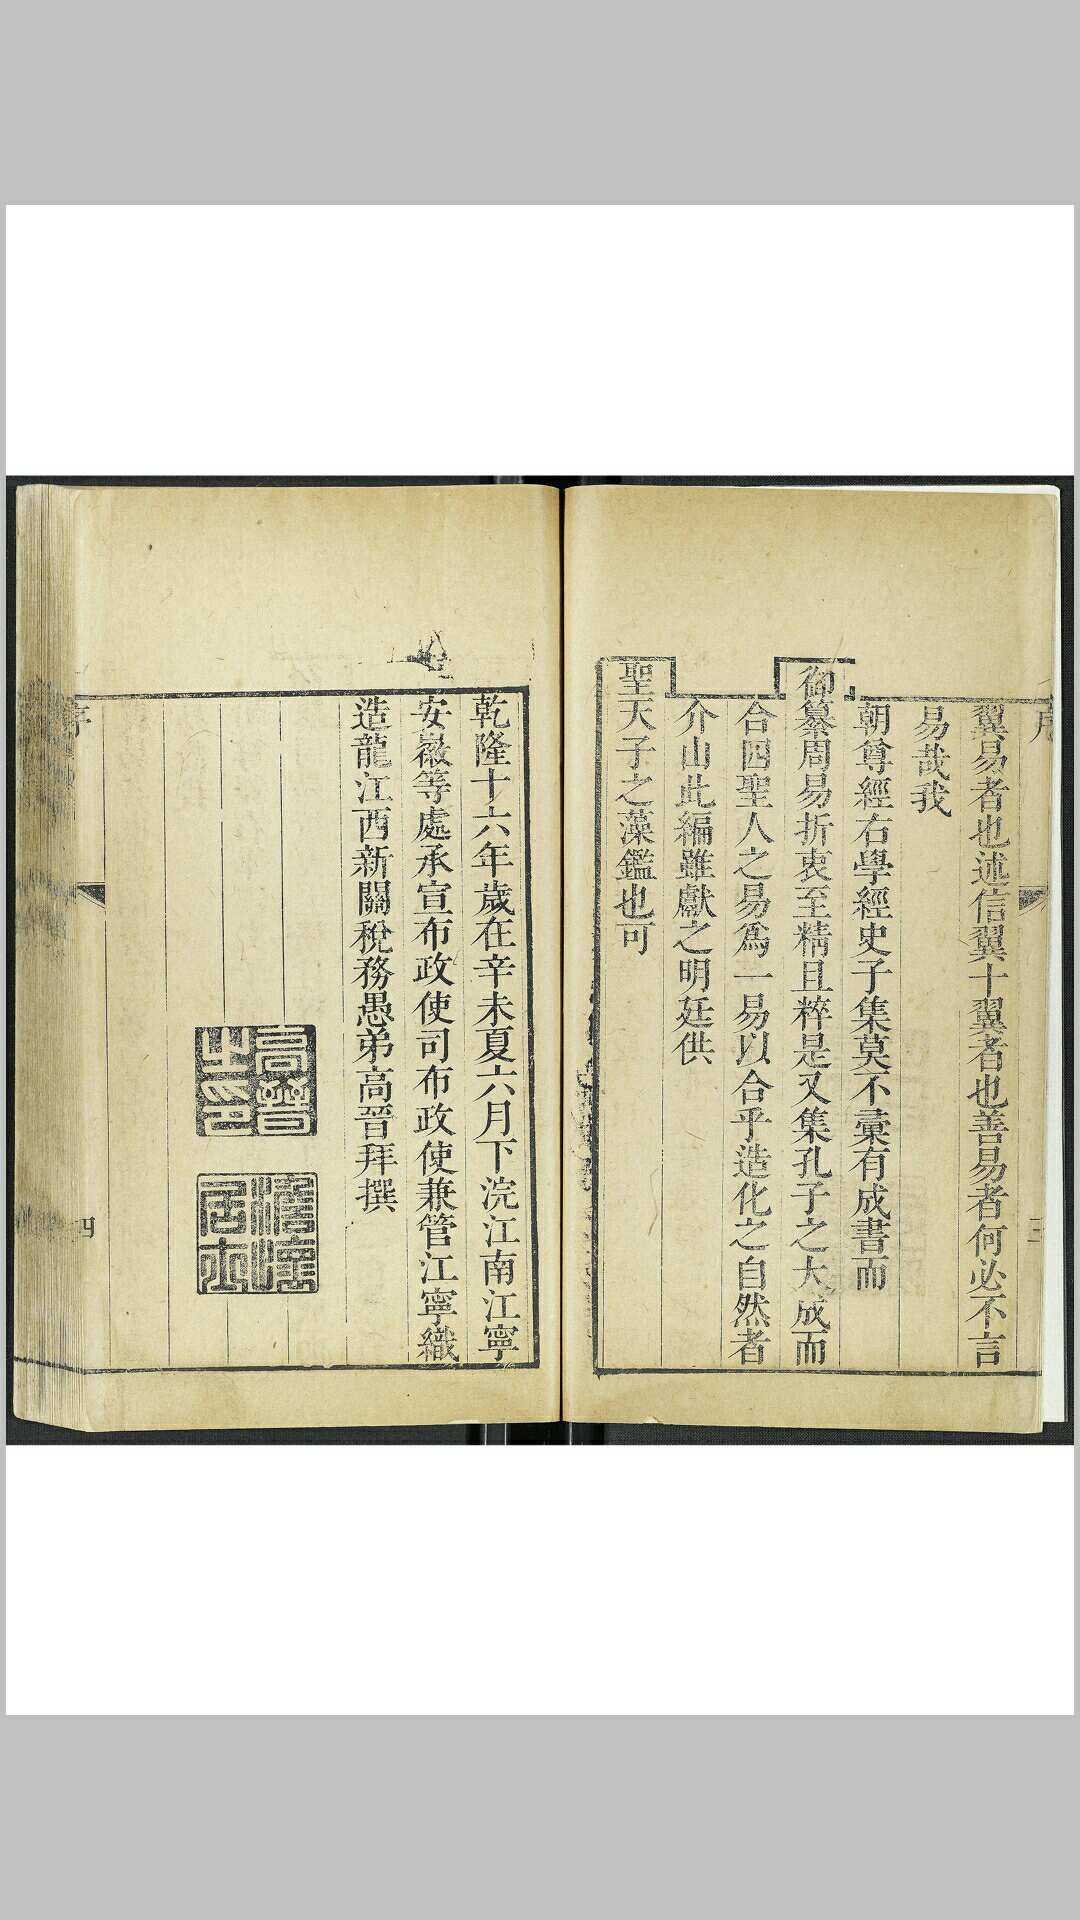 翼易者也述信翼十翼者也善易者何必不言
易哉我
朝尊經右學經史子集莫不彙有成書而
御纂周易折衷至精且粹是又集孔子之大成而
合四聖人之易爲一易以合乎造化之自然者
介山此編雖獻之明廷供
聖天子之藻鑑也可
乾隆十六年歲在辛未夏六月下浣江南江寧
安徽等處承宣布政使司布政使兼管江寧織
造龍江西新關稅務愚弟高晉拜撰
高晉
之印
序
四
三